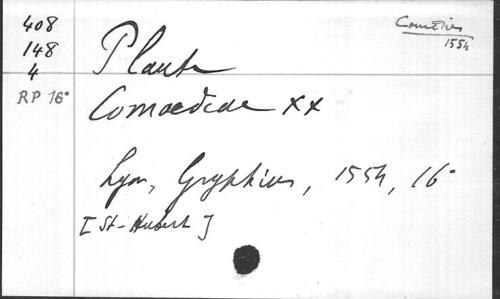 408
148
4
RP 16°
Comédies
1554
Plaute
Comoediae XX
Lyon, Gryphius, 1554, 16°
[St-Hubert]